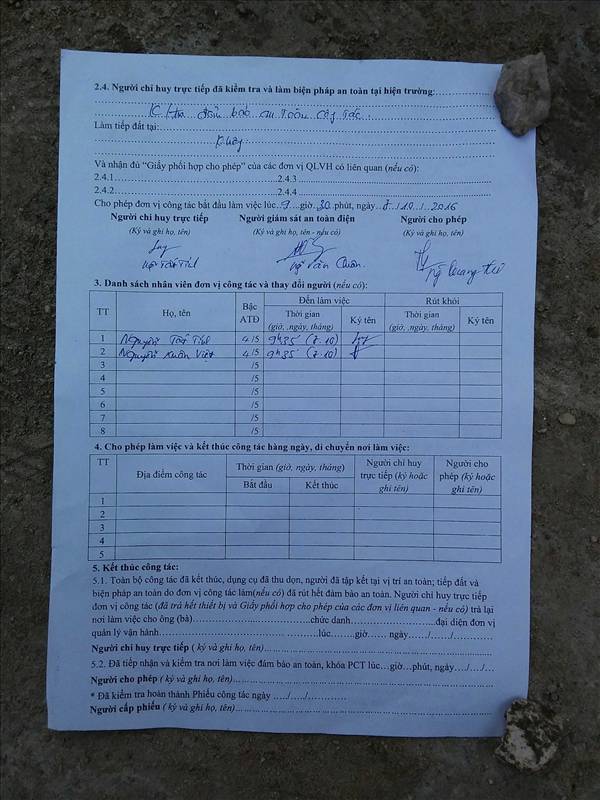 2.4. Người chỉ huy trực tiếp đã kiểm tra và làm biện pháp an toàn tại hiện trường:
đảm bảo an toàn công tác.
Làm tiếp đất tại:
Không
Và nhận đủ "Giấy phối hợp cho phép" của các đơn vị QLVH có liên quan (nếu có):
2.4.1 2.4.3
2.4.2 2.4.4
Cho phép đơn vị công tác bắt đầu làm việc lúc 9 giờ 30 phút, ngày 8/10/2016
Người chỉ huy trực tiếp Người giám sát an toàn điện Người cho phép
(Ký và ghi họ, tên) (Ký và ghi họ, tên - nếu có) (Ký và ghi họ, tên)
Văn Quang
3. Danh sách nhân viên đơn vị công tác và thay đổi người (nếu có):
TT Họ, tên Bậc ATĐ Đến làm việc Rút khỏi
Thời gian (giờ, ,ngày, tháng) Ký tên Thời gian (giờ, ,ngày, tháng) Ký tên
1 Nguyễn Tất 4/5 9h35 (8.10)
2 Nguyễn Xuân Việt 4/5 9h35 (8.10)
3 /5
4 /5
5 /5
6 /5
7 /5
8 /5
4. Cho phép làm việc và kết thúc công tác hàng ngày, di chuyển nơi làm việc:
TT Địa điểm công tác Thời gian (giờ, ngày, tháng) Người chỉ huy trực tiếp (ký hoặc ghi tên) Người cho phép (ký hoặc ghi tên)
Bắt đầu Kết thúc
1
2
3
4
5
5. Kết thúc công tác:
5.1. Toàn bộ công tác đã kết thúc, dụng cụ đã thu dọn, người đã tập kết tại vị trí an toàn; tiếp đất và
biện pháp an toàn do đơn vị công tác làm(nếu có) đã rút hết đảm bảo an toàn. Người chỉ huy trực tiếp
đơn vị công tác (đã trả hết thiết bị và Giấy phối hợp cho phép của các đơn vị liên quan - nếu có) trả lại
nơi làm việc cho ông (bà) chức danh đại diện đơn vị
quản lý vận hành lúc giờ ngày / /
Người chỉ huy trực tiếp ( ký và ghi họ, tên)
5.2. Đã tiếp nhận và kiểm tra nơi làm việc đảm bảo an toàn, khóa PCT lúc…giờ…phút, ngày…./…./…
Người cho phép ( ký và ghi họ, tên)
* Đã kiểm tra hoàn thành Phiếu công tác ngày / /
Người cấp phiếu ( ký và ghi họ, tên)